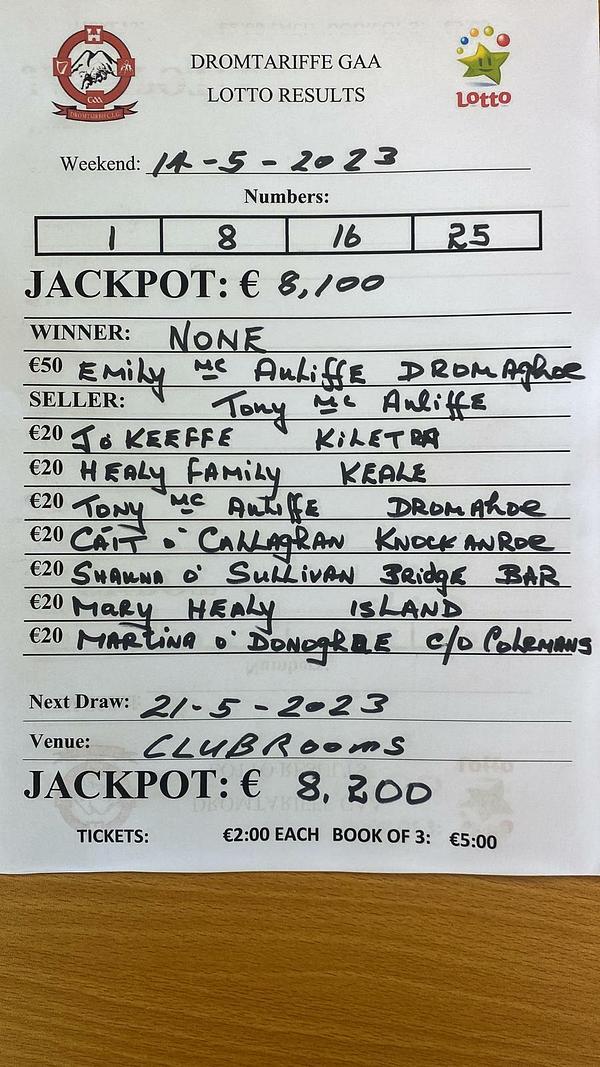 DROMTARIFFE GAA
LOTTO RESULTS
GAA
DROMTARIFFE GAA
Lotto
Weekend: 14-5-2023
Numbers:
1 8 16 25
JACKPOT: € 8,100
WINNER: NONE
€50 Emily Mc Auliffe DROMAghoe
SELLER: Tony Mc Auliffe
€20 Jo KEEFFE KiLETRA
€20 HEALY FAMILY KEALE
€20 Tony Mc Auliffe DROMAhoe
€20 CÁIT o' CALLAgHAN KNOCKANROE
€20 SHAUNA o' SULLIVAN BRidgE BAR
€20 MARY HEALY ISLAND
€20 MARTINA o' DONOgHUE C/O COLEMANS
Next Draw: 21-5-2023
Venue: CLUBROOMS
JACKPOT: € 8.200
TICKETS: €2:00 EACH BOOK OF 3: €5:00